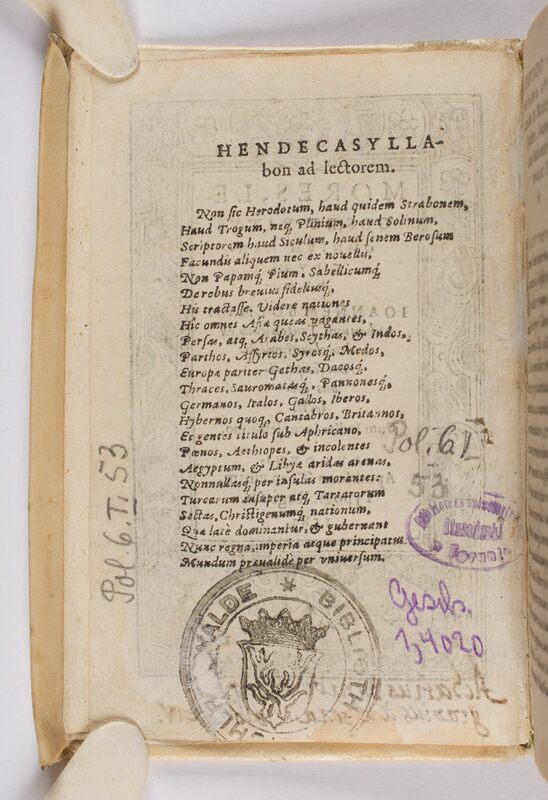 HENDECASYLLA-
bon ad lectorem.
Non sic Herodotum, haud quidem Strabonem,
Haud Trogum, neq; Plinium, haud Solinum,
Scriptorem haud Siculum, haud senem Berosum
Facundis aliquem nec ex nouellis,
Non Papamq́; Pium, Sabellicumq́;
De rebus breuius fideliusq́;
His tractasse. Videre nationes
Hic omnes Asiæ queas vagantes,
Persas, atq; Arabes, Scythas, & Indos,
Parthos, Assyrios, Syrosq́;, Medos,
Europæ pariter Gethas, Dacosq́;,
Thraces, Sauromatasq́;, Pannonesq́;,
Germanos, Italos, Gallos, Iberos,
Hybernos quoq;, Cantabros, Britannos,
Et gentes titulo sub Aphricano,
Pœnos, Aethiopes, & incolentes
Aegyptum, & Libyæ aridas arenas,
Nonnullasq́; per insulas morantes:
Turcarum insuper atq; Tartarorum
Sectas, Christigenumq́; nationum,
Quæ late dominantur, & gubernant
Nunc regna, imperia atque principatus
Mundum præualide per vniuersum.
Pol. 6. II. 53
Pol. 6 I
53
Gesch.
1,4020
WALDE * BIBLIOTH